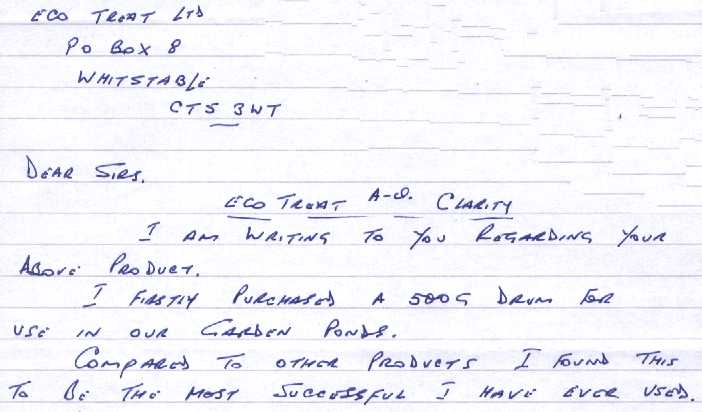 ECO TREAT LTD
PO BOX 8
WHITSTABLE
CT5 3WT
DEAR SIRS.
ECO TREAT A-D. CLARITY
I AM WRITING TO YOU REGARDING YOUR
ABOVE PRODUCT.
I FIRSTLY PURCHASED A 500G DRUM FOR
USE IN OUR GARDEN PONDS.
COMPARED TO OTHER PRODUCTS I FOUND THIS
TO BE THE MOST SUCCESSFUL I HAVE EVER USED.